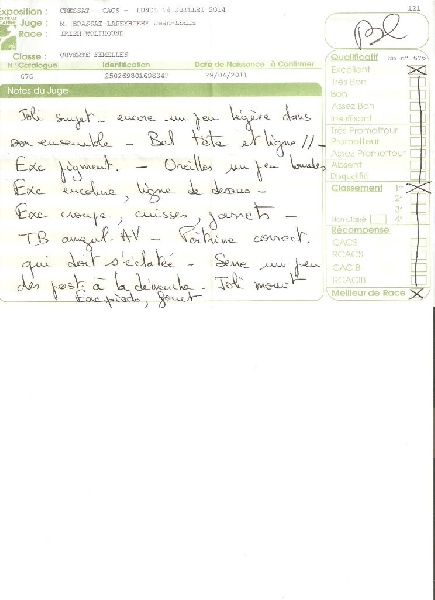 Exposition : CRESSAT - CACS - LUNDI 14 JUILLET 2014
121
Juge :
Race : IRISH WOLFHOUND
Classe : OUVERTE FEMELLES
N°Catalogue Identification Date de Naissance à Confirmer
676 250269801698347 29/06/2011
Notes du Juge
Joli sujet - encore un peu légère dans
son ensemble - Bel tête et ligne // -
Exc pigment. - Oreilles un peu lourdes
Exc encolure, ligne de dessus -
Exc croupe, cuisses, jarrets -
TB angul. AV - Poitrine correct.
qui doit s'éclatée - Serre un peu
des post. à la démarche - Joli mouvt
Exc pieds, fouet
Qualificatif
676
Excellent
Très Bon
Bon
Assez Bon
Insuffisant
Très Prometteur
Prometteur
Assez Prometteur
Absent
Disqualifié
Classement 1°
2°
3°
Non classé 4°
Récompense
CACS
RCACS
CACIB
RCACIB
Meilleur de Race